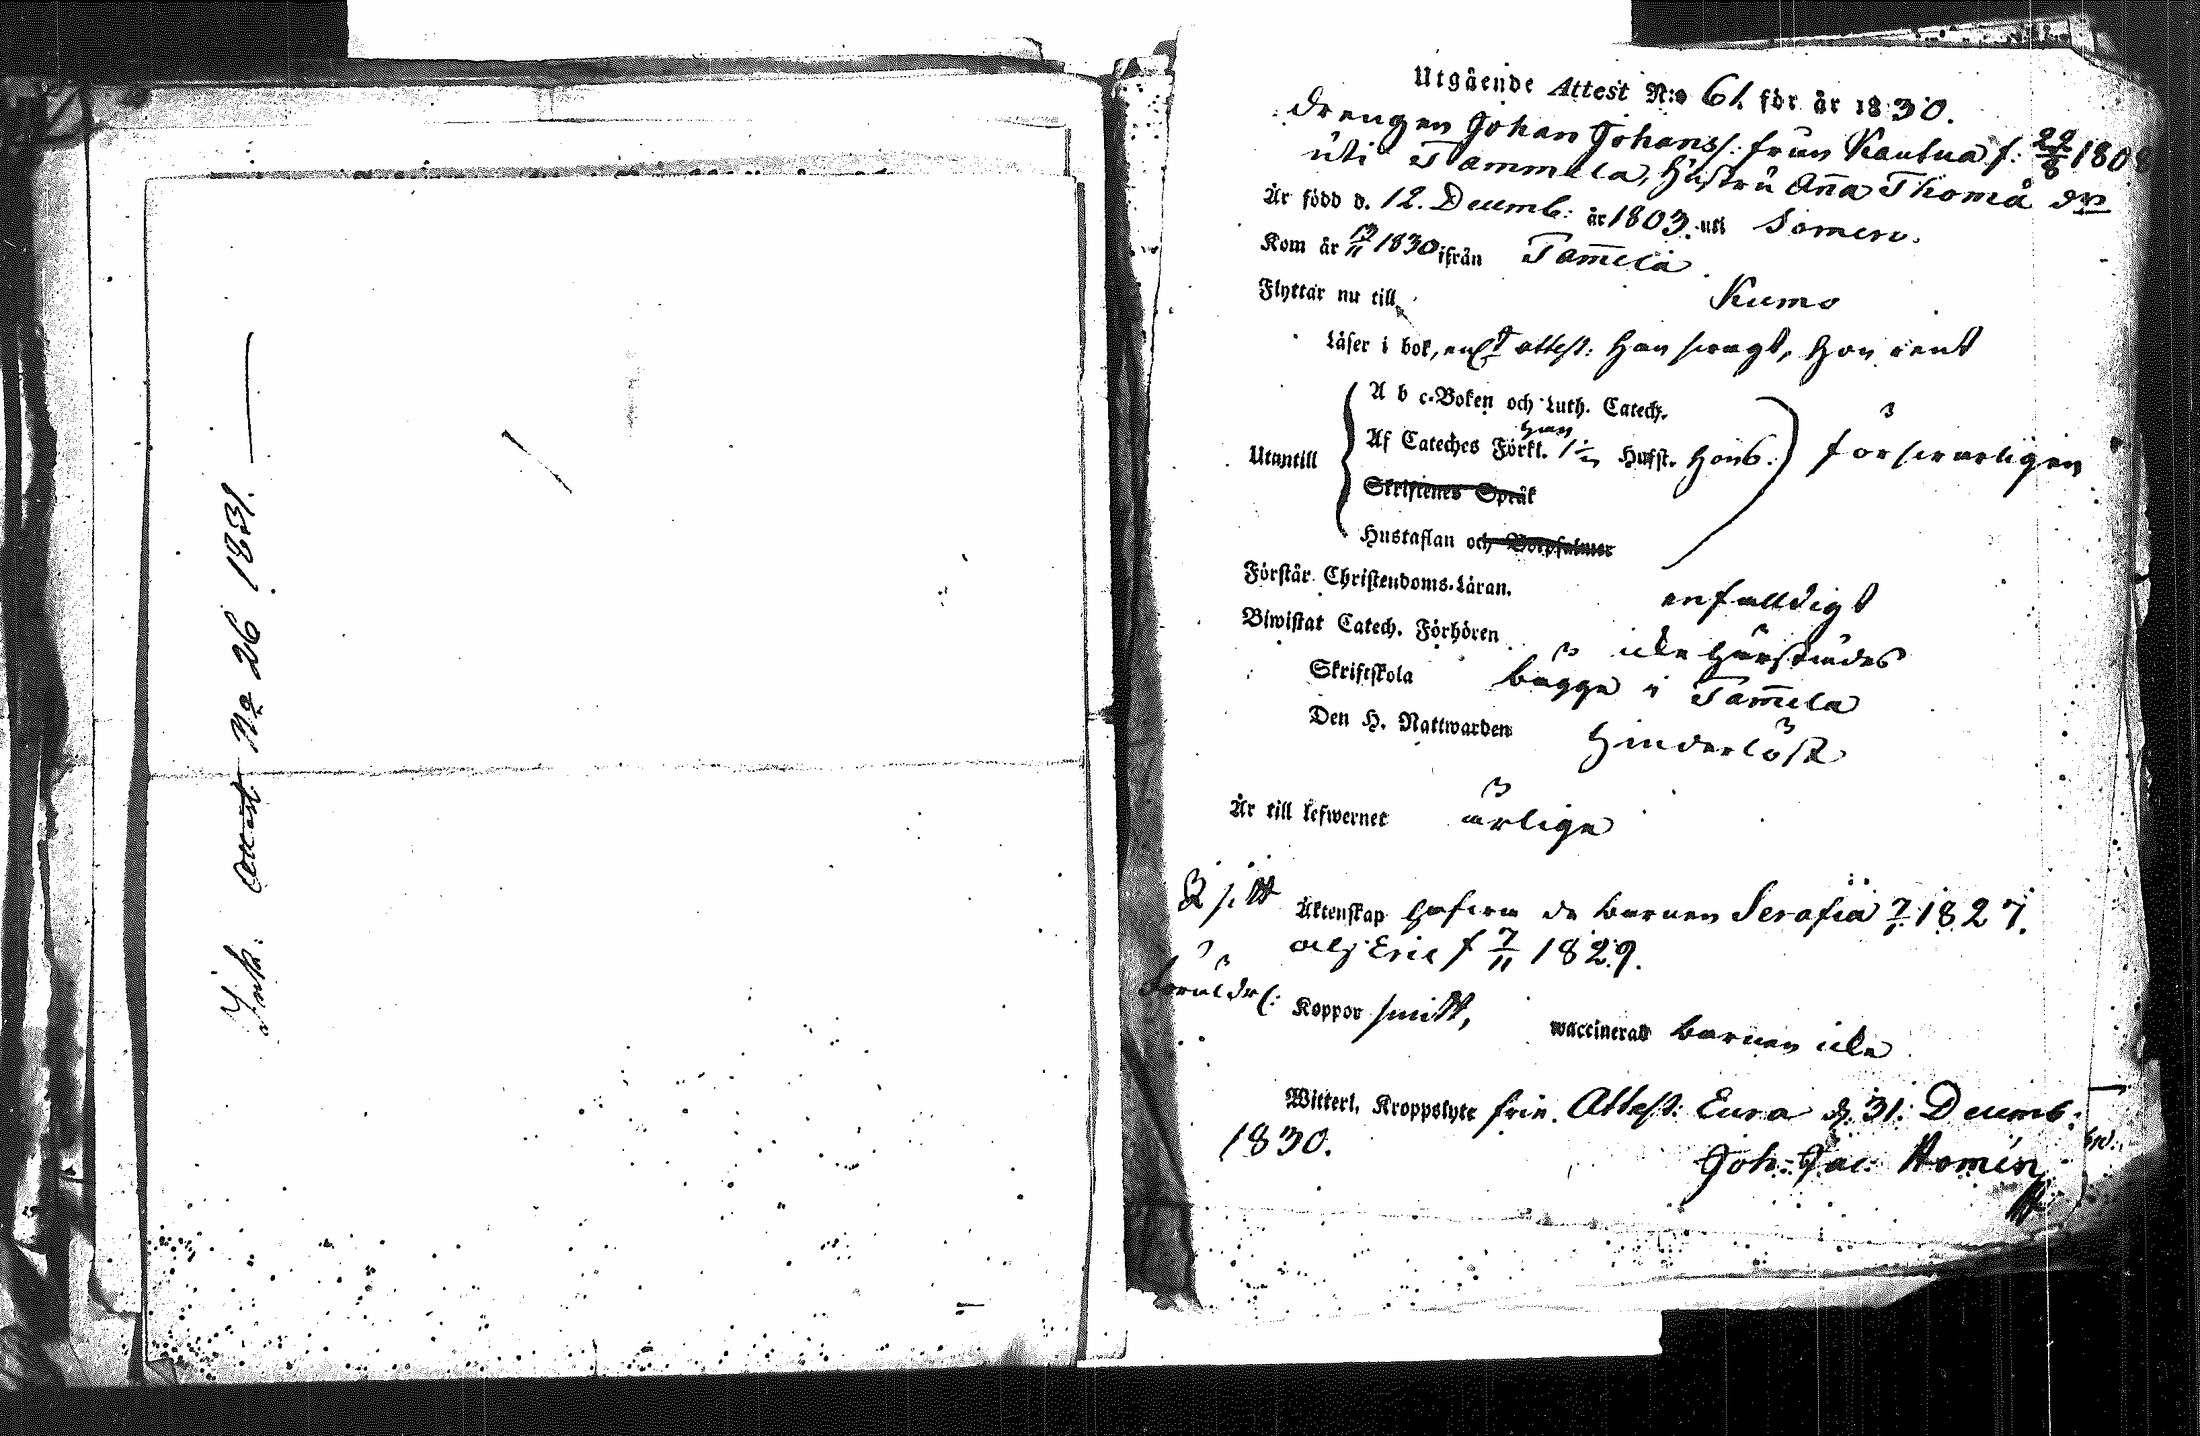 Ink: attest No 26 1831.
Utgående Attest N:o 61. för år 1830.
Drengen Johan Johanss: från Kautua f: 22/8 1808
uti Tammela, Hustru Aña Thomä dr
Är född d. 12. Decemb: år 1803. uti Somero.
Kom år 13/11 1830 ifrån Tam̄ela
Flyttar nu till Kumo
Läser i bok, enl attest: Han swagt, Hon rent
A b c-Boken och Luth. Catech.
Han
Utantill Af Cateches Förkl. 1/2 Hufst. Hon 6. försvarligen
Skriftenes Språk
Hustaflan och Botpsalmer
Förstår Christendoms-Läran. enfalldigt
Biwistat Catech. Förhören icke härstädes
Skriftskola bägge i Tam̄ela
Den H. Nattwarden Hinderlöst
Är till lefwernet ärlige
I sitt Äktenskap hafwa de barnen Serafia 7/1 1827.
och Eric f 7/11 1829.
Föräldr: Koppor smitt, waccinerad barnen icke
Witterl. Kroppslyte frie. Attest: Eura d. 31. Decemb:
1830.
Joh: Jac: Homén